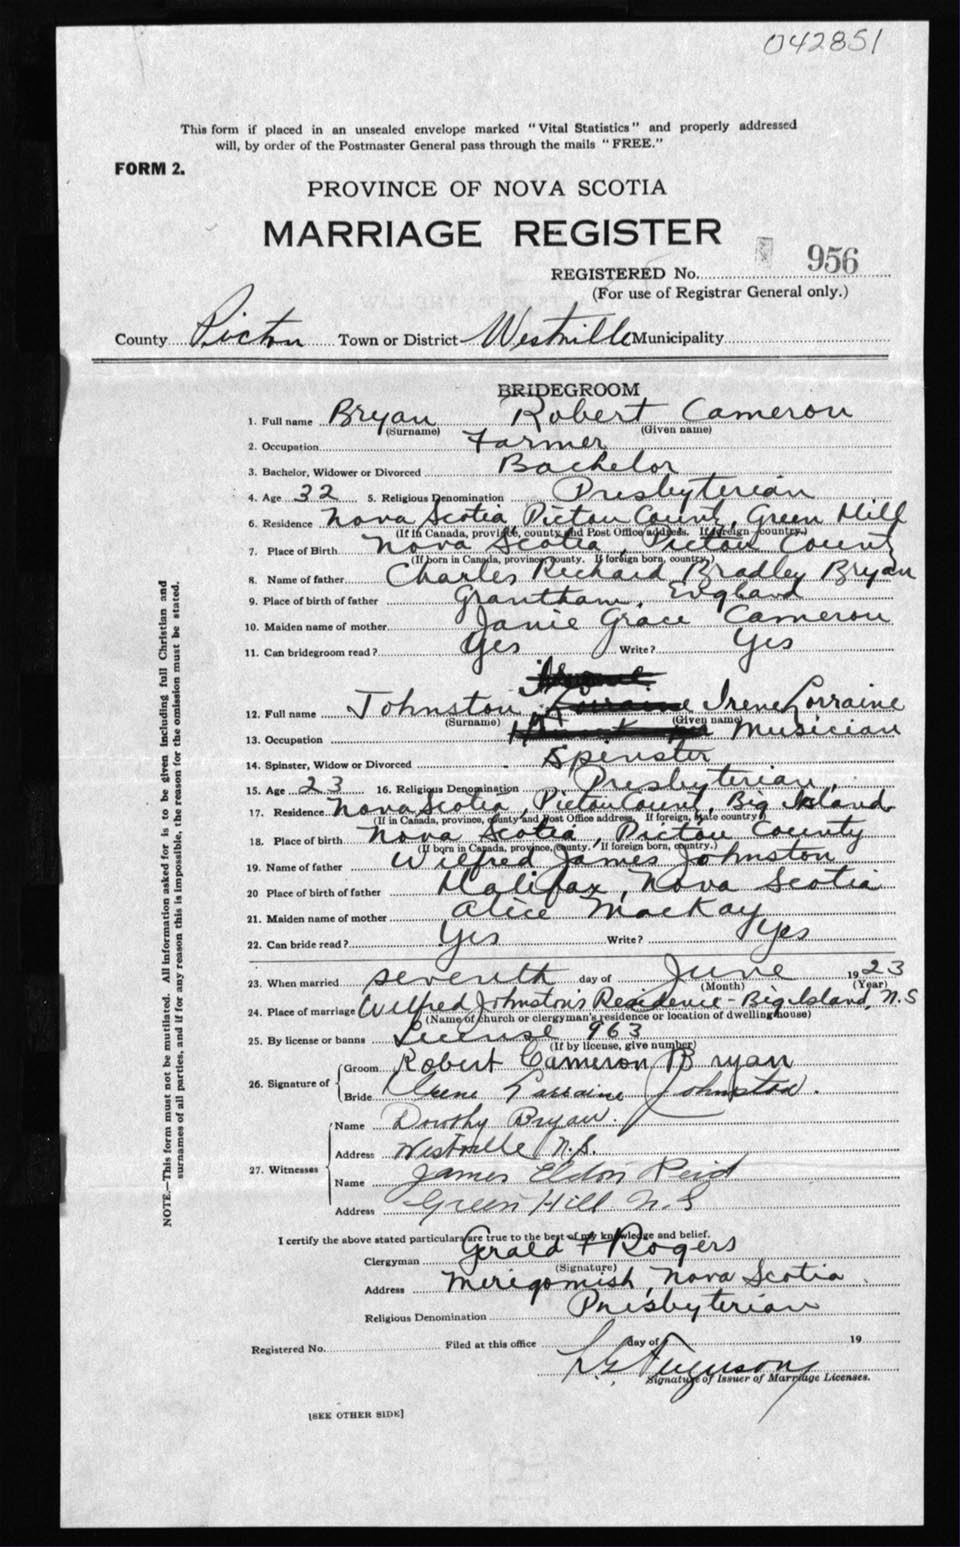 042851
This form if placed in an unsealed envelope marked "Vital Statistics" and properly addressed
will, by order of the Postmaster General pass through the mails "FREE."
FORM 2.
PROVINCE OF NOVA SCOTIA
MARRIAGE REGISTER
REGISTERED No. 956
(For use of Registrar General only.)
County Pictou Town or District Westville Municipality
BRIDEGROOM
1. Full name Bryan Robert Cameron
(Surname) (Given name)
2. Occupation Farmer
3. Bachelor, Widower or Divorced Bachelor
4. Age 32 5. Religious Denomination Presbyterian
6. Residence Nova Scotia, Pictou County, Green Hill
(If in Canada, province, county and Post Office address. If foreign country.)
7. Place of Birth Nova Scotia, Pictou County
(If born in Canada, province, county. If foreign born, country.)
8. Name of father Charles Richard Bradley Bryan
9. Place of birth of father Grantham, England
10. Maiden name of mother Janie Grace Cameron
11. Can bridegroom read? Yes Write? Yes
12. Full name Johnston Lorraine Irene Lorraine
(Surname) (Given name)
13. Occupation Musician
14. Spinster, Widow or Divorced Spinster
15. Age 23 16. Religious Denomination Presbyterian
17. Residence Nova Scotia, Pictou County, Big Island
(If in Canada, province, county and Post Office address. If foreign, state country)
18. Place of birth Nova Scotia, Pictou County
(If born in Canada, province, county. If foreign born, country.)
19. Name of father Wilfred James Johnston
20 Place of birth of father Halifax, Nova Scotia
21. Maiden name of mother Alice MacKay
22. Can bride read? Yes Write? Yes
23. When married seventh day of June 1923
(Month) (Year)
24. Place of marriage Wilfred Johnstons Residence - Big Island, N.S
(Name of church or clergyman's residence or location of dwelling house)
25. By license or banns License 963
(If by license, give number)
26. Signature of Groom Robert Cameron Bryan
Bride Irene Larraine Johnston.
27. Witnesses Name Dorothy Bryan.
Address Westville N.S.
Name James Eldon Reid
Address Green Hill N.S
I certify the above stated particulars are true to the best of my knowledge and belief.
Clergyman Gerald F Rogers
(Signature)
Address Merigomish, Nova Scotia
Religious Denomination Presbyterian
Registered No. Filed at this office day of 19
L. G. Ferguson
Signature of Issuer of Marriage Licenses.
[SEE OTHER SIDE]
NOTE.—This form must not be mutilated. All information asked for is to be given including full Christian and
surnames of all parties, and if for any reason this is impossible, the reason for the omission must be stated.